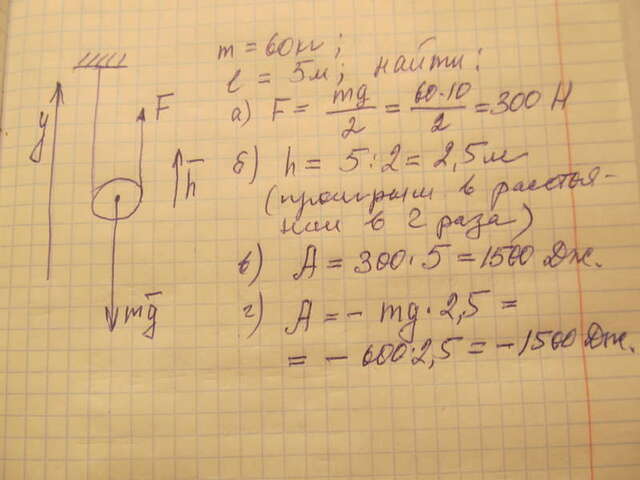 m = 60кг;
l = 5м; найти:
а) F = mg/2 = 60·10/2 = 300 Н
б) h = 5:2 = 2,5м
(проигрыш в расстоя-
нии в 2 раза)
в) A = 300·5 = 1500 Дж.
г) A = - mg·2,5 =
= - 600·2,5 = -1500 Дж.
y
F
h
mg